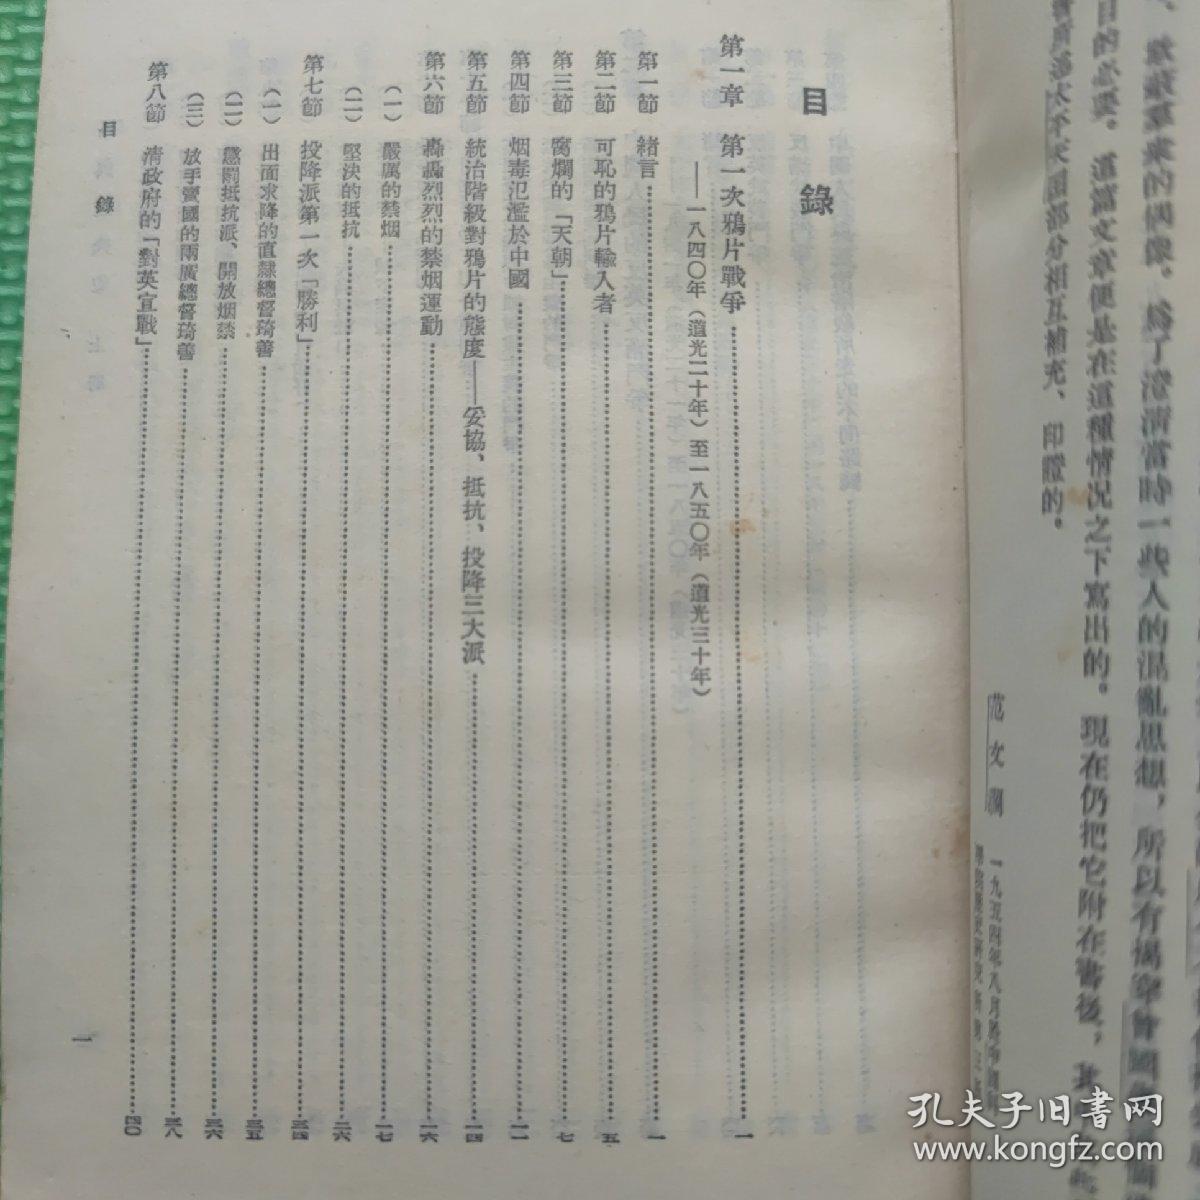 自的必要。這篇文章便是在這種情况之下寫出的。現在仍把它附在書後，
部分相互補充、印證的。
范文瀾
目錄
第一章 第一次鴉片戰爭……一
——一八四〇年（道光二十年）至一八五〇年（道光三十年）
第一節 緒言……一
第二節 可恥的鴉片輸入者……五
第三節 腐爛的「天朝」……七
第四節 烟毒氾濫於中國……一一
第五節 統治階級對鴉片的態度——妥協、抵抗、投降三大派……一四
第六節 轟轟烈烈的禁烟運動……一六
（一）嚴厲的禁烟……一七
（二）堅决的抵抗……二六
第七節 投降派第一次「勝利」……三四
（一）出面求降的直隸總督琦善……三五
（二）懲罰抵抗派、開放烟禁……三六
（三）放手賣國的兩廣總督琦善……三八
第八節 清政府的「對英宣戰」……四〇
目錄
一
孔夫子旧书网
www.kongfz.com